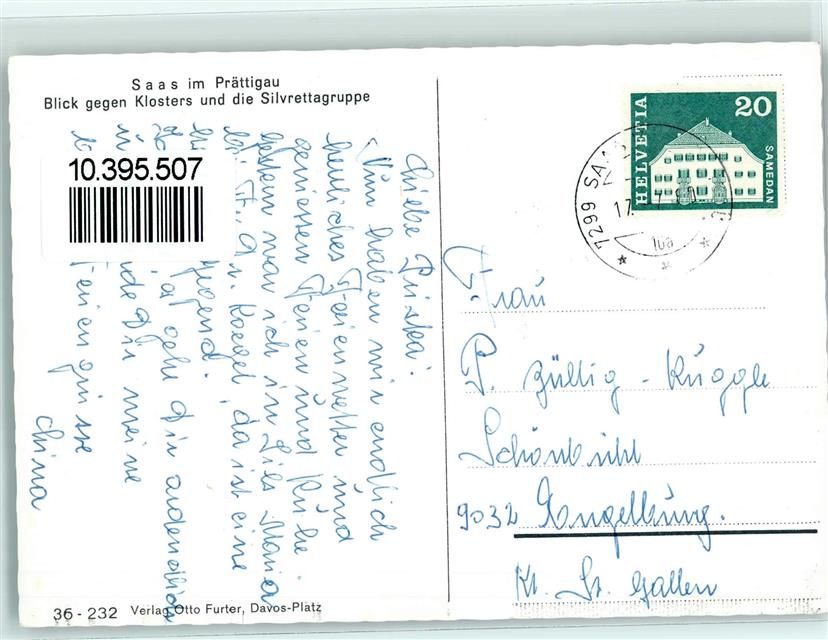 Saas im Prättigau
Blick gegen Klosters und die Silvrettagruppe
10.395.507
Liebe Priska!
Nun haben wir endlich
herrliches Ferienwetter und
geniessen Ferien und Ruhe
gestern war ich in Sils Maria
bei Fr. Dr. da ist eine
Gegend!
geht Dir ordentlich
Dir meine
Feriengrüsse
China
HELVETIA
20
SAMEDAN
7299 SA
17
Frau
P. Züllig - Kuggle
Schönbühl
9032 Engelburg.
Kt. St. Gallen
36 - 232 Verlag Otto Furter, Davos-Platz